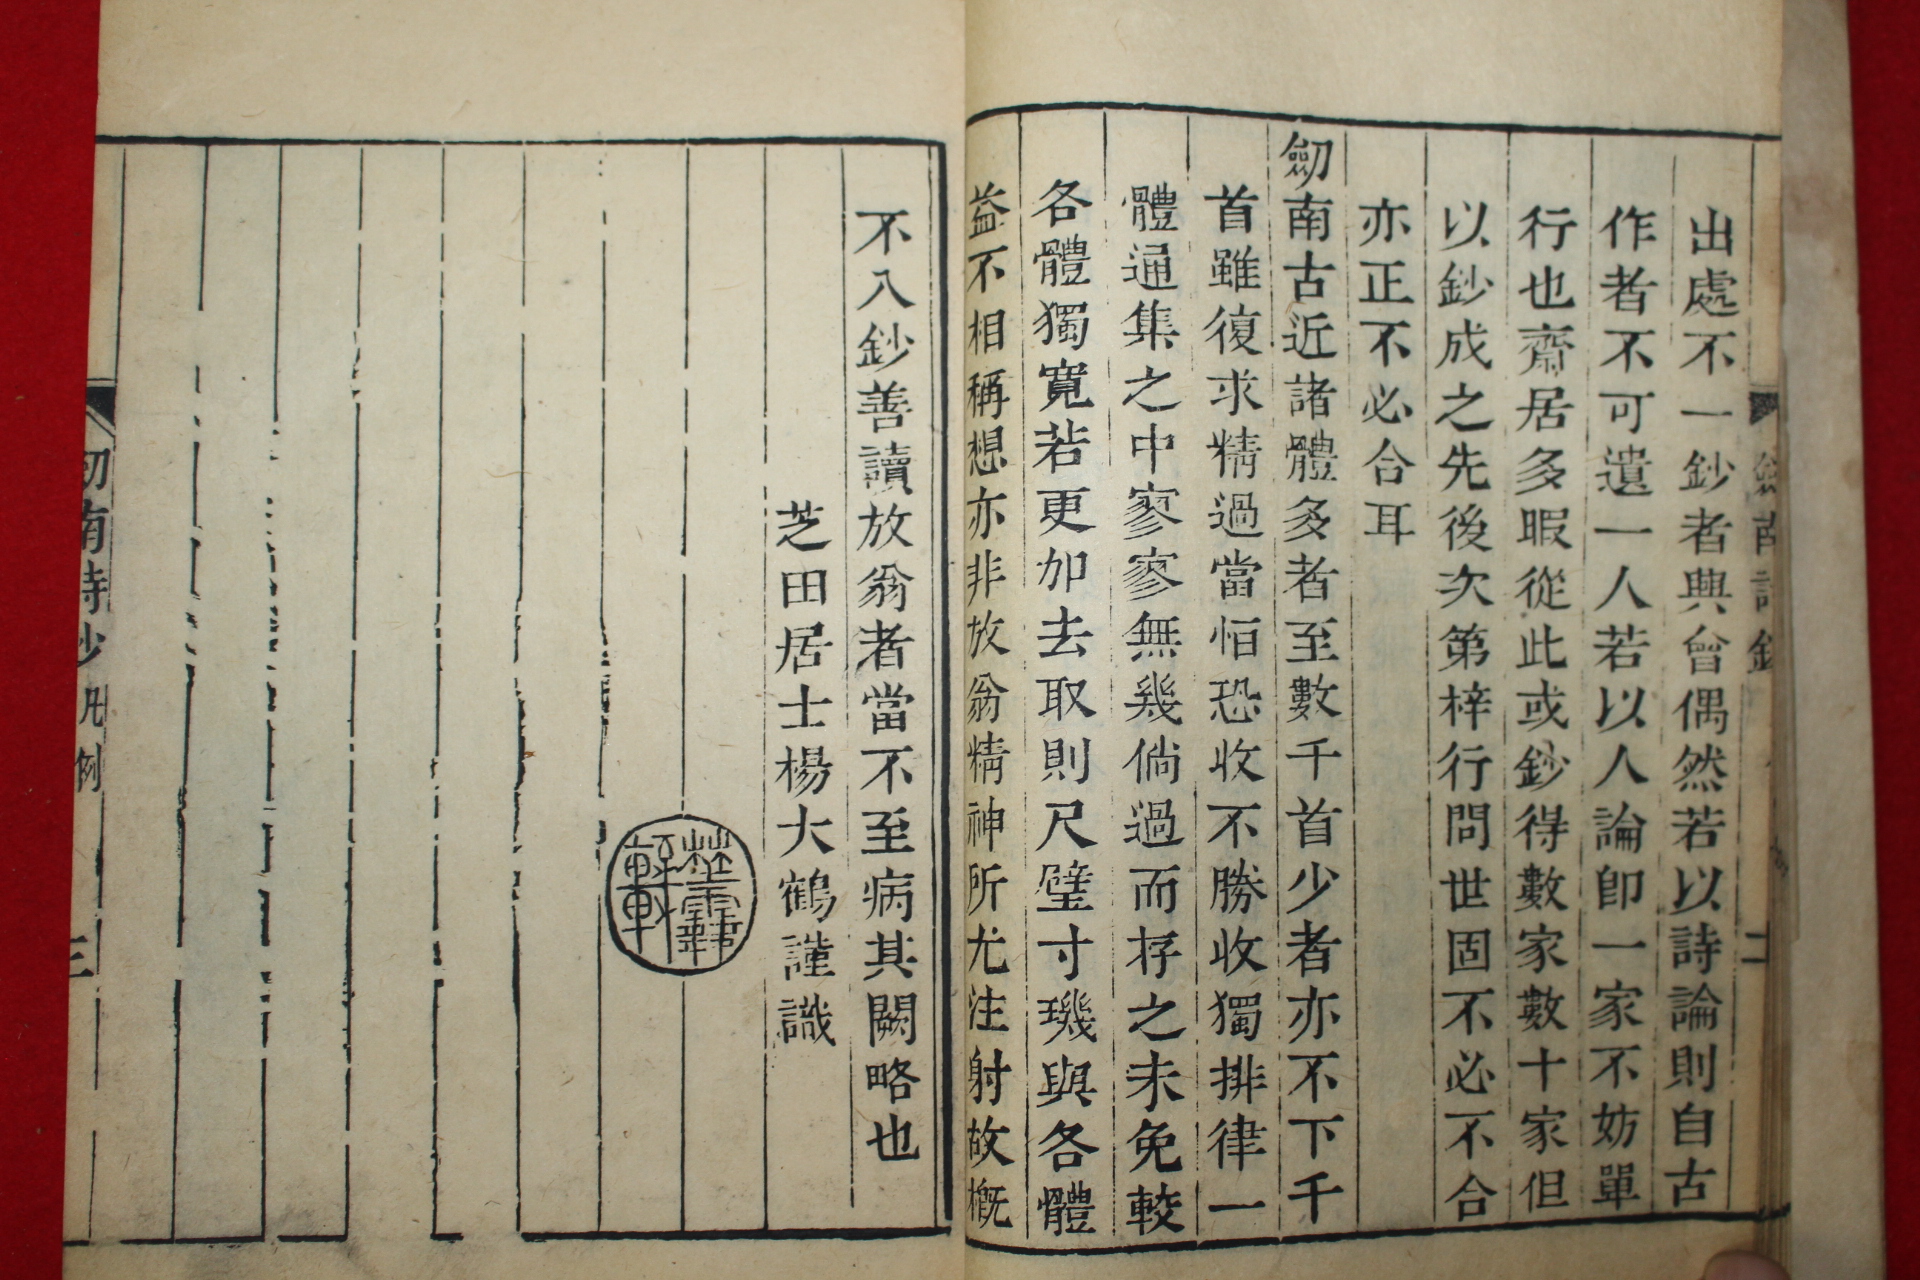 出處不一鈔者興會偶然若以詩論則自古
作者不可遺一人若以人論卽一家不妨單
行也齋居多暇從此或鈔得數家數十家但
以鈔成之先後次第梓行問世固不必不合
亦正不必合耳
劒南古近諸體多者至數千首少者亦不下千
首雖復求精過當怕恐收不勝收獨排律一
體通集之中寥寥無幾倘過而存之未免較
各體獨寬若更加去取則尺璧寸璣與各體
益不相稱想亦非放翁精神所尤注射故槪
不入鈔善讀放翁者當不至病其闕略也
芝田居士楊大鶴謹識
劒南詩鈔 凡例
三